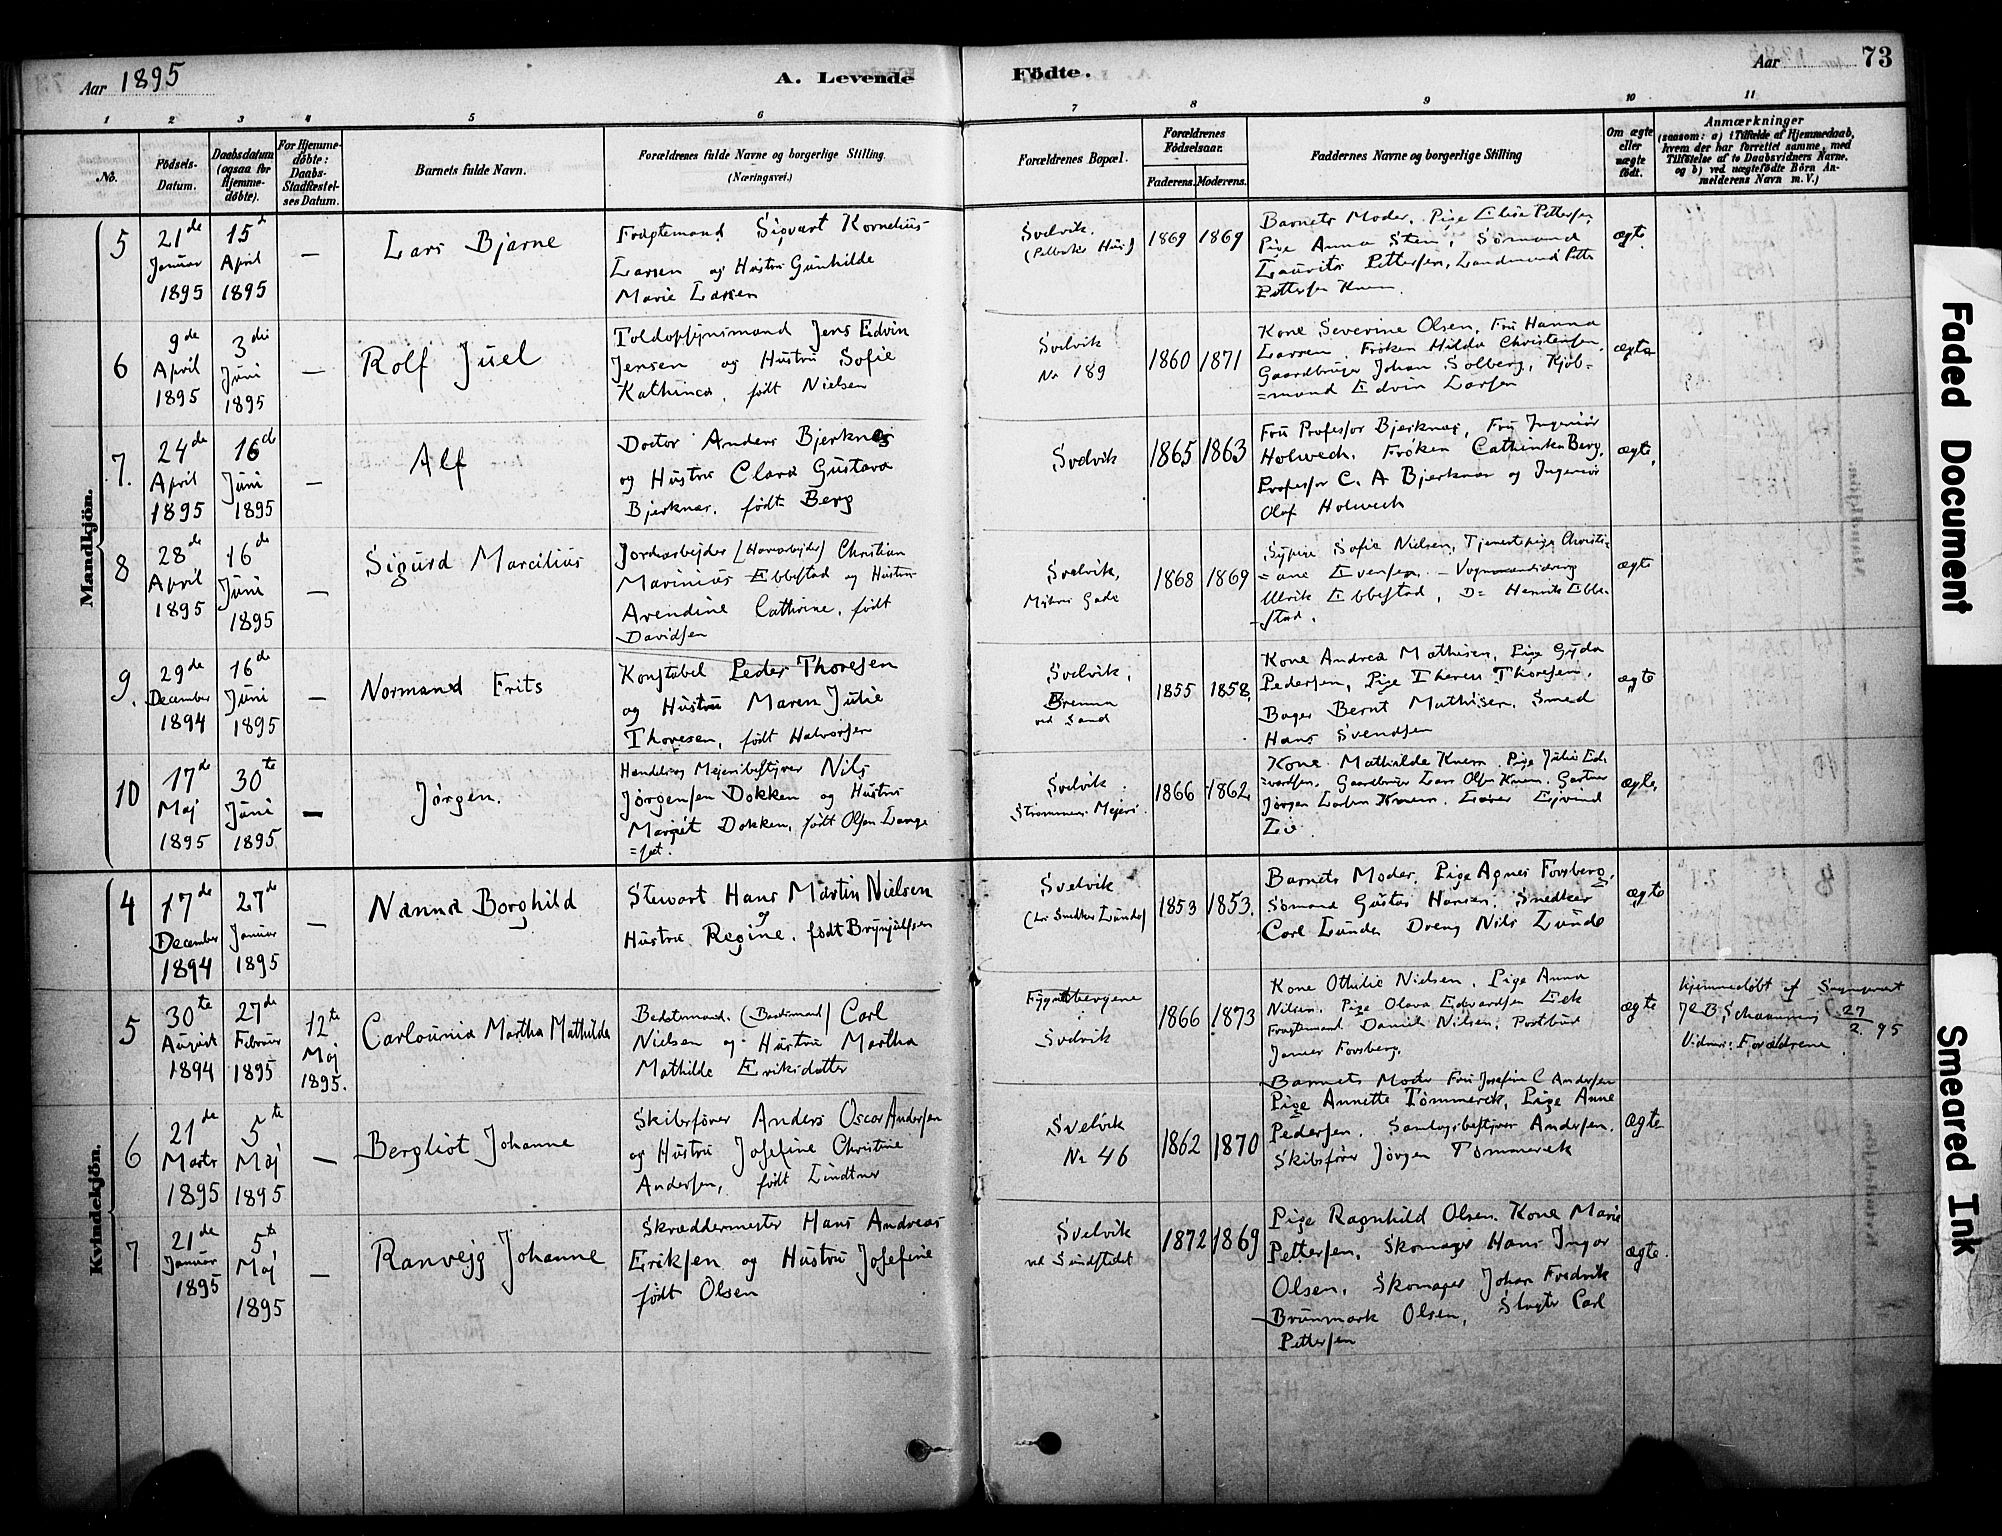 Aar 1895
A. Levende
Födte.
Aar
73
1 2 3 4 5 6 7 8 9 10 11
No.
Födsels-Datum.
Daabsdatum (ogsaa for Hjemmedøbte).
For Hjemmedøbte: Daabs-Stadfæstelses Datum.
Barnets fulde Navn.
Forældrenes fulde Navne og borgerlige Stilling. (Næringsvei.)
Forældrenes Bopæl.
Forældrenes Födselsaar.
Faderens. Moderens.
Faddernes Navne og borgerlige Stilling
Om ægte eller uægte födt.
Anmærkninger
(saasom: a) i Tilfælde af Hjemmedaab, hvem der har forrettet samme, med Tilföielse af to Daabsvidners Navne, og b) ved uægtefödte Börn Anmelderens Navn m. V.)
Mandkjön.
5
21de Januar 1895
15d April 1895
—
Lars Bjarne
Fragtemand Sigvart Kornelius
Larsen og Hustru Gunhilde
Marie Larsen
Svelvik.
1869 1869
Barnets Moder, Pige Elise Pettersen
Pige Anna Sten, Sömand
Laurits Pettersen, Landmand
Pettersen Knem.
ægte
6
9de April 1895
3die Juni 1895
—
Rolf Juel
Toldopsynsmand Jens Edvin
Jensen og Hustru Sofie
Kathinca, født Nielsen
Svelvik
No 189
1860 1871
Kone Severine Olsen, Fru Hanna
Larsen, Frøken Hilda Christensen,
Gaardbruger Johan Solberg, Kjöb-
=mand Edvin Larsen
ægte
7.
24de April 1895
16de Juni 1895
—
Alf
Doctor Anders Bjerknes
og Hustru Clara Gustava
Bjerknes, født Berg
Svelvik
1865 1863
Fru Professor Bjerknes, Fru Ingeniör
Holwech, Frøken Cathinka Berg,
Professor C. A Bjerknes og Ingeniör
Olaf Holwech
ægte,
8
28de April 1895
16de Juni 1895
—
Sigurd Marcilius
Jordarbejder (Havearbejder) Christian
Marinius Ebbestad og Hustru
Arendine Cathrine, født
Davidsen
Svelvik,
Gade
1868 1869
Sypige Sofie Nielsen, Tjenestepige Christi=
=ane Evensen, —
Ulrik Ebbestad, D= Henrik Ebbe-
-stad.
ægte
9.
29de December 1894
16de Juni 1895
—
Normand Frits
Konstabel Peder Thoresen
og Hustru Maren Julie
Thoresen, født Halvorsen
Svelvik,
Brenna
ved Sand
1855 1858
Kone Andrea Mathisen, Pige Gyda
Pedersen, Pige Therese Thoresen,
Bager Bernt Mathisen, Smed
Hans Svendsen
ægte
10
17de Maj 1895
30te Juni 1895
—
Jørgen.
Handels og Mejeribestyrer Nils
Jørgensen Dokken og Hustru
Margit Dokken, født Olsen Lange
Svelvik.
Strømmen Mejeri
1866 1862
Kone Mathilde Knem, Pige Julie Ed-
=vardsen, Gaardbruger Lars Olsen Knem, Gartner
Jørgen Larsen Knem, Lærer Ejvind
Lie.
ægte,
Kvindekjön.
4
17de December 1894
27de Januar 1895
—
Nanna Borghild
Stewart Hans Martin Nielsen
og
Hustru Regine, født Brynjulfsen
Svelvik
(hos Snedker Lunde)
1853 1853.
Barnets Moder, Pige Agnes Forsberg,
Sømand Gustav Hansen, Snedker
Carl Lunde, Dreng Nils Lunde
ægte
5
30te August 1894
27de Februar 1895
12te Maj 1895.
Carlounia Martha Mathilde
Bedstemand (Baadsmand) Carl
Nielsen og Hustru Martha
Mathilde Eriksdatter
Svelvik
1866 1873
Kone Othilie Nielsen, Pige Anna
Nilsen, Pige Olava Edvardsen Eek
Fragtemand Daniel Nilsen, Postbud
Forsberg,
ægte
Hjemmedöbt af Sogneprest
27/2 95
Vidner: Forældrene.
6
21de Marts 1895
5te Maj 1895
—
Bergliot Johanne
Skibsfører Anders Oscar Andersen
og Hustru Josefine Christine
Andersen, født Lindtner
Svelvik
No 46
1862 1870
Barnets Moder Fru Josefine C Andersen
Pige Annette Tömmerek, Pige Anne
Pedersen, Samlagsbestyrer Andersen,
Skibsfører Jörgen Tømmerek
ægte
7
21de Januar 1895
5te Maj 1895
—
Ranveig Johanne
Skræddermester Hans Andreas
Eriksen og Hustru Josefine
født Olsen
Svelvik
ved Sundstedet
1872 1869
Pige Ragnhild Olsen, Kone Marie
Pettersen, Skomager Hans Ingar
Olsen, Skomager Johan Fredrik
Brunmark Olsen, Slagter Carl
Pettersen
ægte.
Faded Document
Smeared Ink